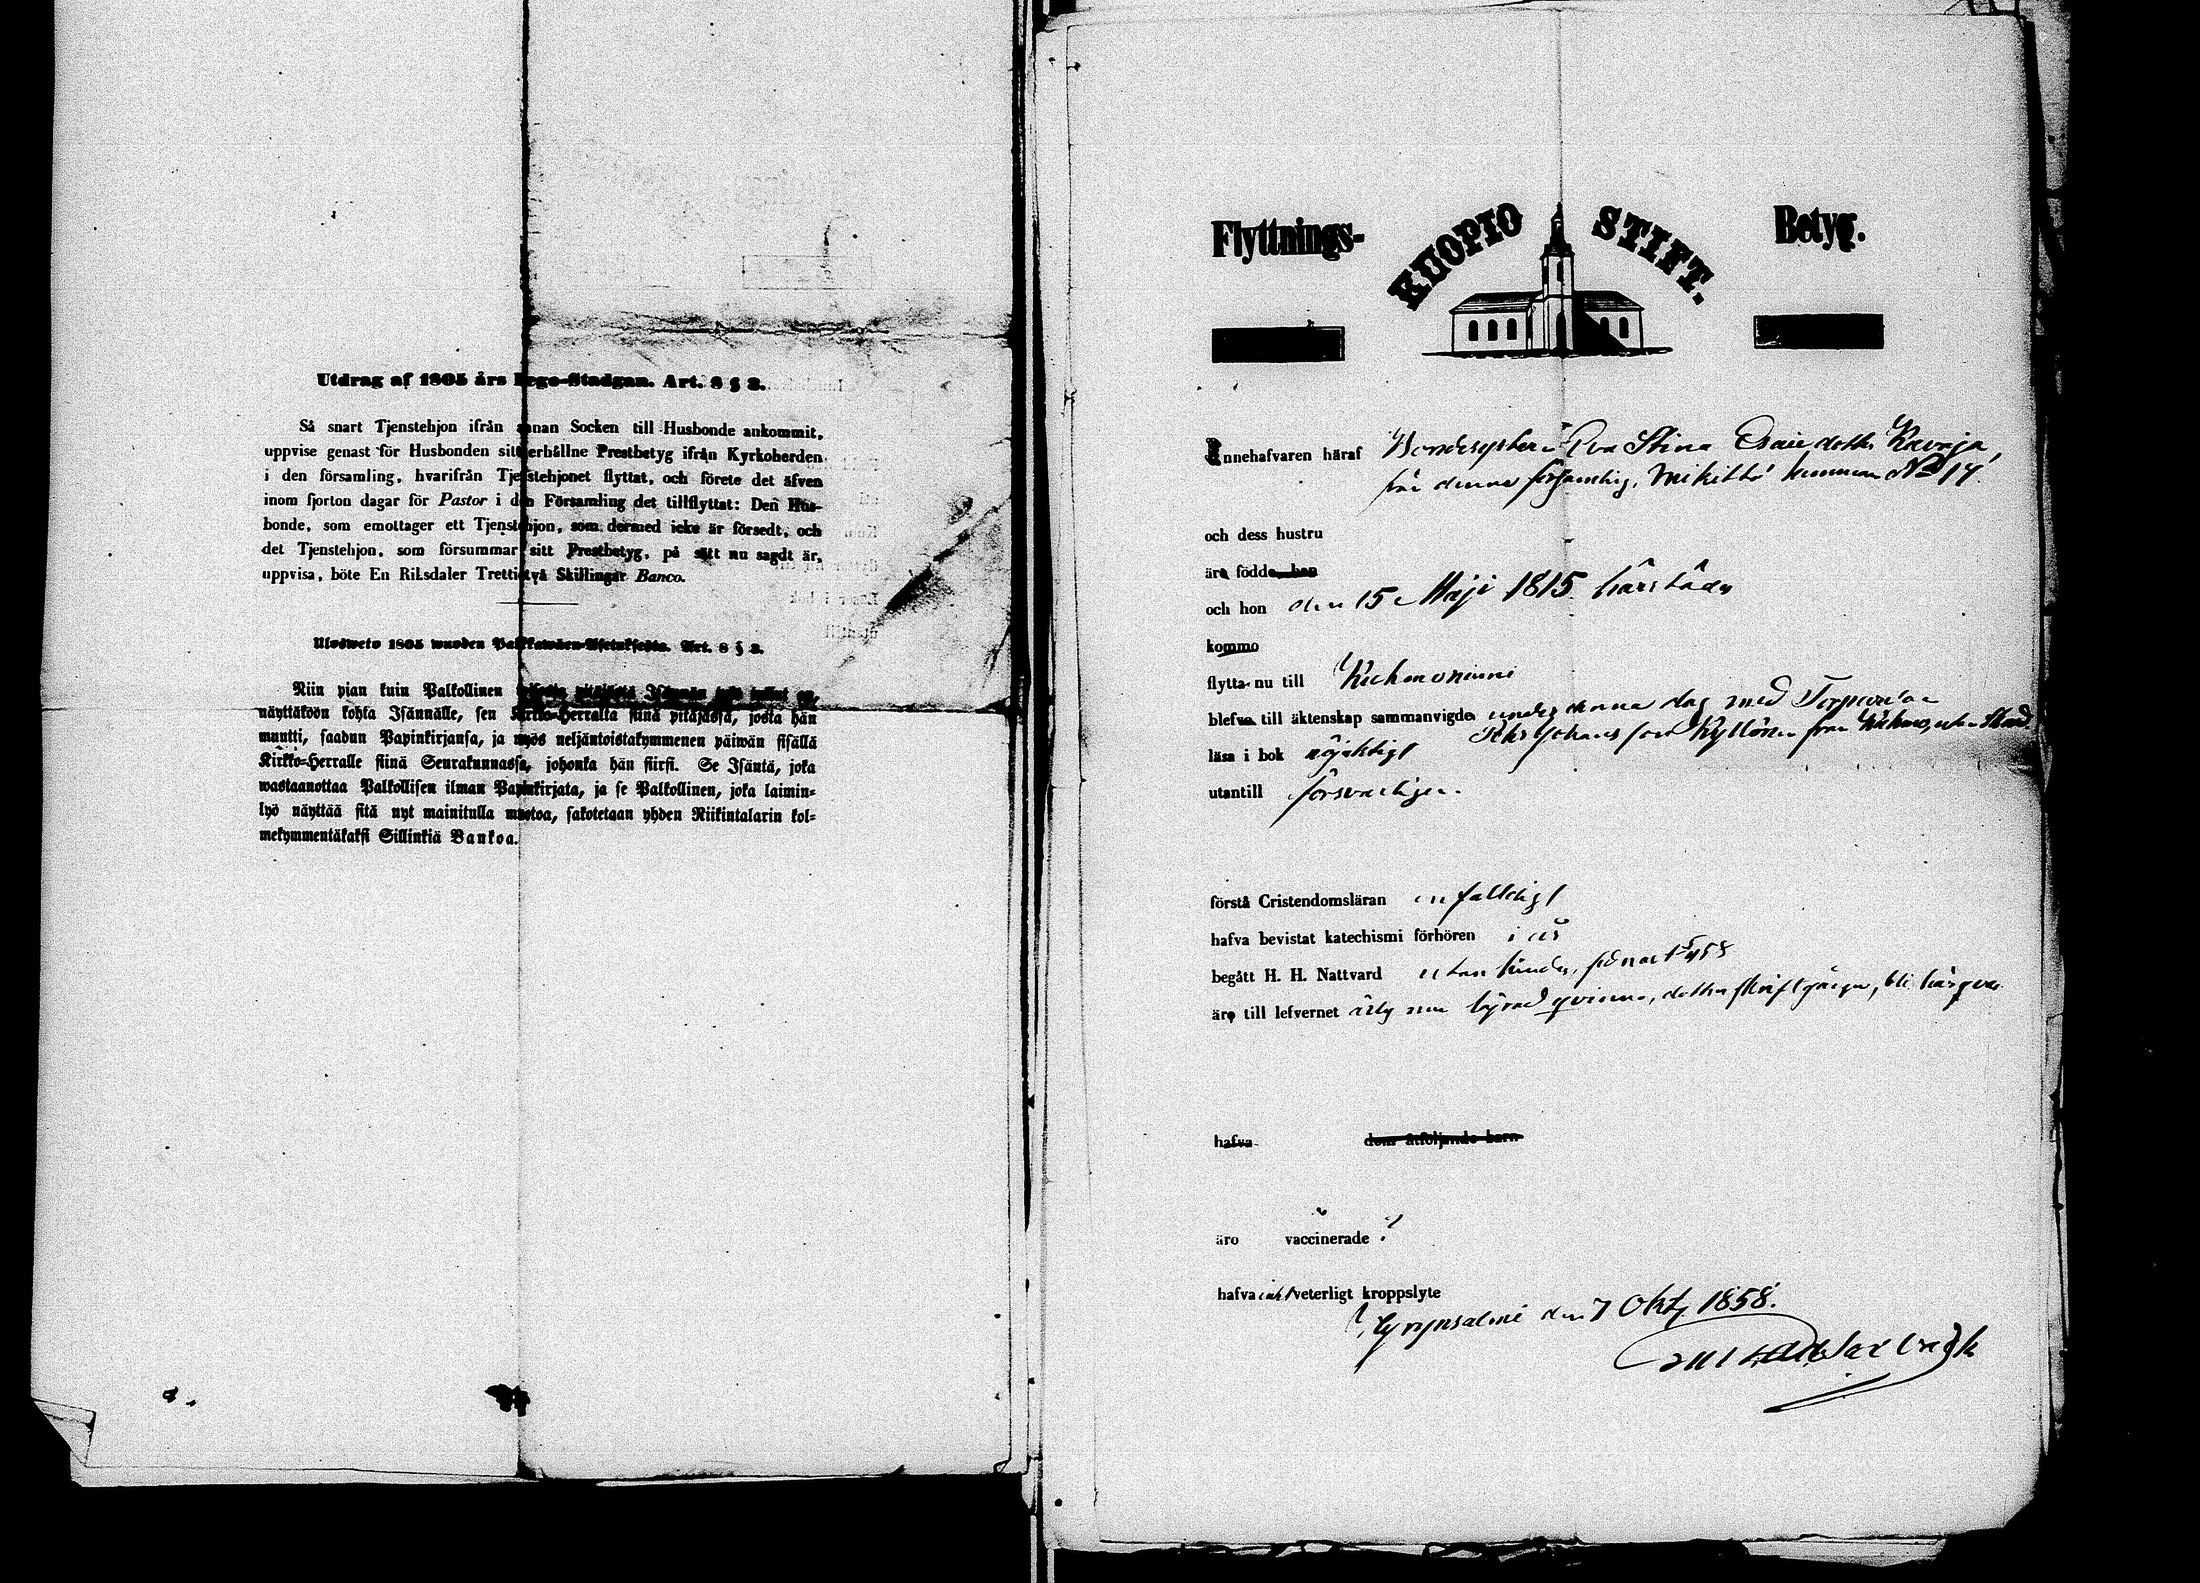 Utdrag af 1805 års Lego-Stadgan. Art. 8 § 3.
Så snart Tjenstehjon ifrån annan Socken till Husbonde ankommit,
uppvise genast för Husbonden sitt erhållne Prestbetyg ifrån Kyrkoherden
i den församling, hvarifrån Tjenstehjonet flyttat, och förete det äfven
inom fjorton dagar för Pastor i den Församling det tillflyttat: Den Hus-
bonde, som emottager ett Tjenstehjon, som dermed icke är försedt, och
det Tjenstehjon, som försummar sitt Prestbetyg, på sätt nu sagdt är,
uppvisa, böte En Riksdaler Trettiotvå Skillingar Banco.
Ulosweto 1805 wuoden Palkkawäen-Asetuksesta. Art. 8 § 3.
Niin pian kuin Palkollinen
näyttäköön kohta Isännälle, sen Kirkko-Herralta siinä pitäjässä, josta hän
muutti, saadun Papinkirjansa, ja myös neljäntoistakymmenen päiwän sisällä
Kirkko-Herralle siinä Seurakunnassa, johonka hän siirsi. Se Isäntä, joka
wastaanottaa Palkollisen ilman Papinkirjata, ja se Palkollinen, joka laimin-
lyö näyttää sitä nyt mainitulla muotoa, sakotetaan yhden Riikintalarin kol-
mekymmentäkaksi Sillinkiä Bankoa.
Flyttnings- KUOPIO STIFT. Betyg.
Innehafvaren häraf Eva Stina Kavaja
från denna församling, No 17
och dess hustru
äro födde, han
och hon den 15 Maji 1815 härstädes
komma
flytta nu till Kuhmoniemi
blefvo till äktenskap sammanvigde denna dag med Torparen
Johansson Kyllönen från
läsa i bok nöjaktigt
utantill försvarligen.
förstå Cristendomsläran enfaldigt
hafva bevistat katechismi förhören i år
begått H. H. Nattvard utan hinder,
äro till lefvernet qvinna,
hafva dem åtföljande barn
äro vaccinerade
hafva veterligt kroppslyte
Hyrynsalmi den 7 Okt 1858.